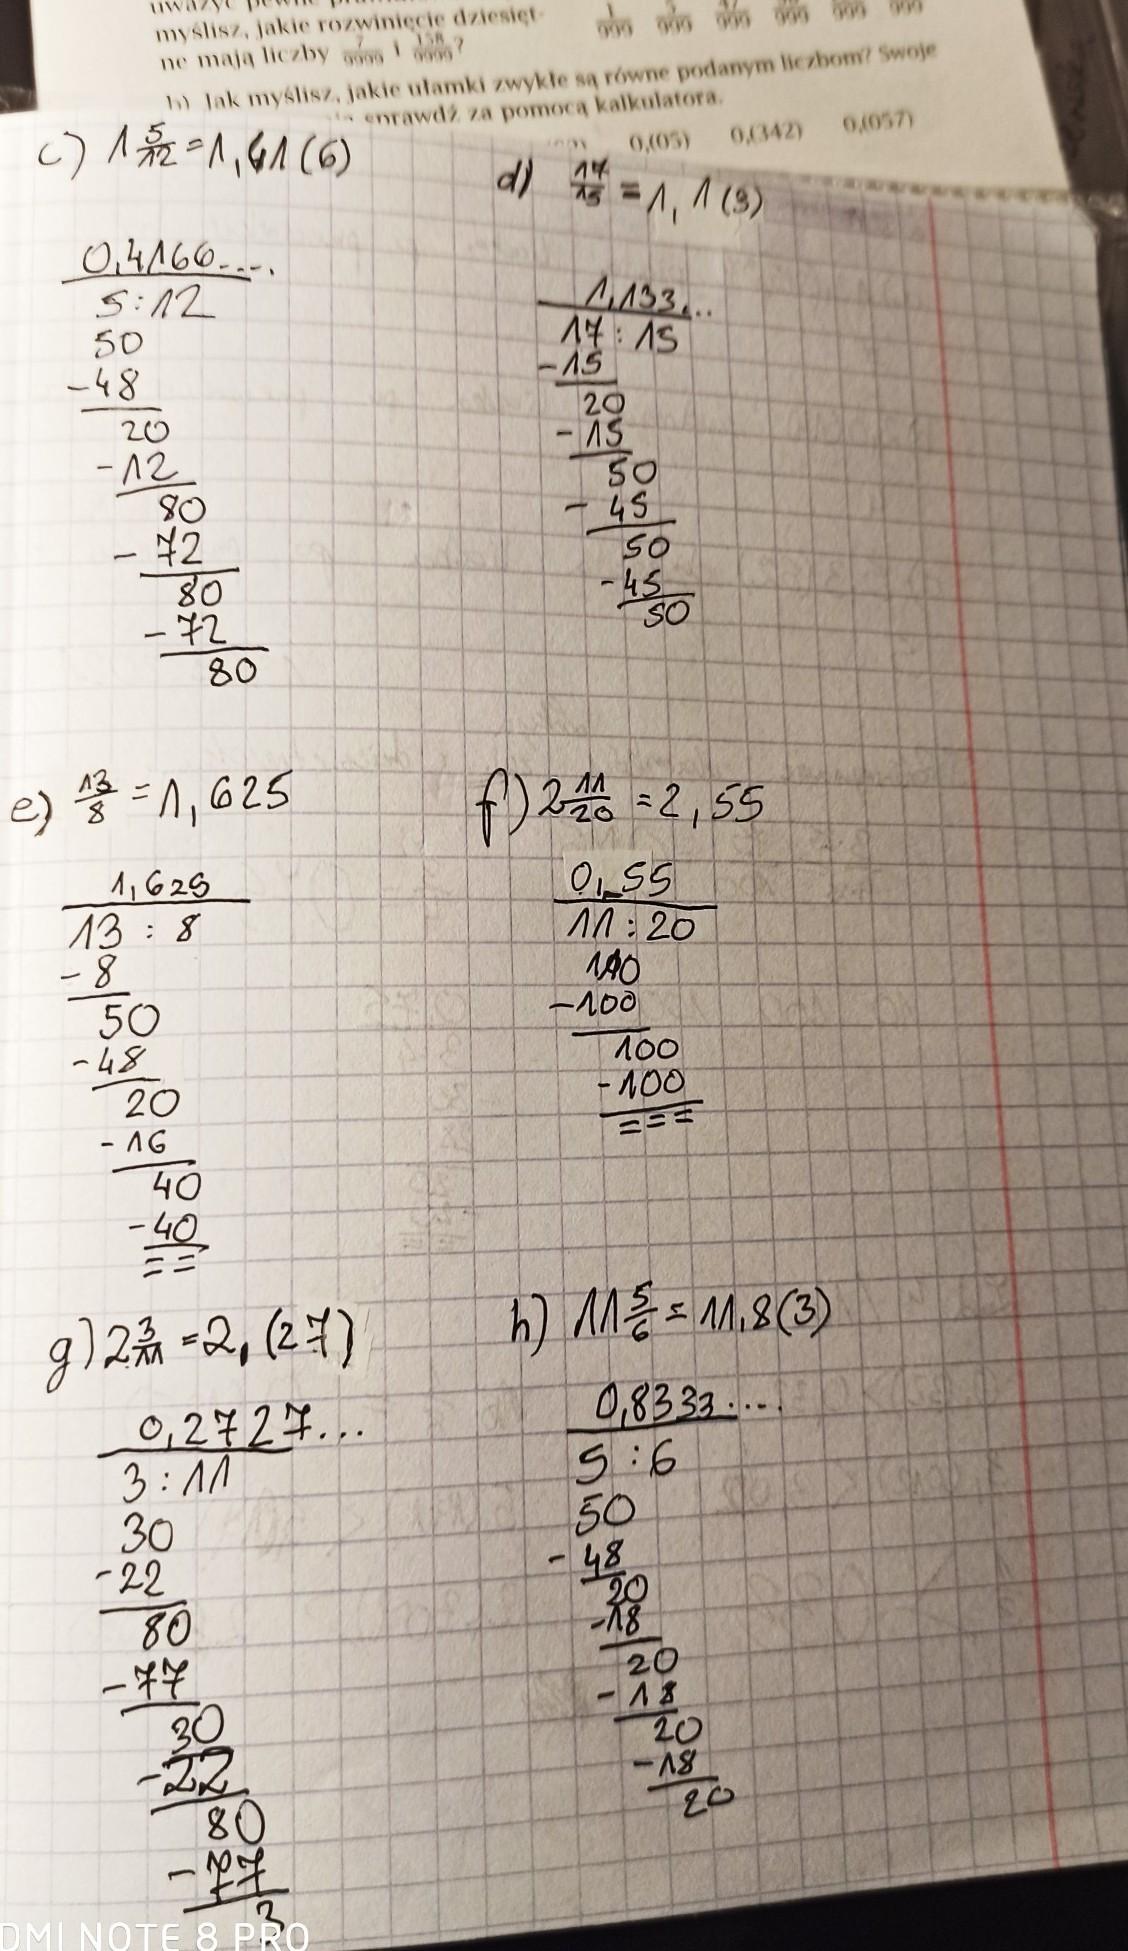 myślisz, jakie rozwinięcie dziesięt-
ne mają liczby 7/9999 i 158/9999?
b) Jak myślisz, jakie ułamki zwykłe są równe podanym liczbom? Swoje
sprawdź za pomocą kalkulatora.
0,(05) 0,(342) 0,(057)
c) 1 5/12 = 1,41(6)
0,4166....
5:12
50
-48
20
-12
80
-72
80
-72
80
d) 17/15 = 1,1(3)
1,133...
17:15
-15
20
-15
50
-45
50
-45
50
e) 13/8 = 1,625
1,625
13 : 8
-8
50
-48
20
-16
40
-40
==
f) 2 11/20 = 2,55
0,55
11:20
110
-100
100
-100
===
g) 2 3/11 = 2,(27)
0,2727...
3:11
30
-22
80
-77
30
-22
80
-77
3
h) 11 5/6 = 11,8(3)
0,8333....
5:6
50
-48
20
-18
20
-18
20
-18
20
DMI NOTE 8 PRO